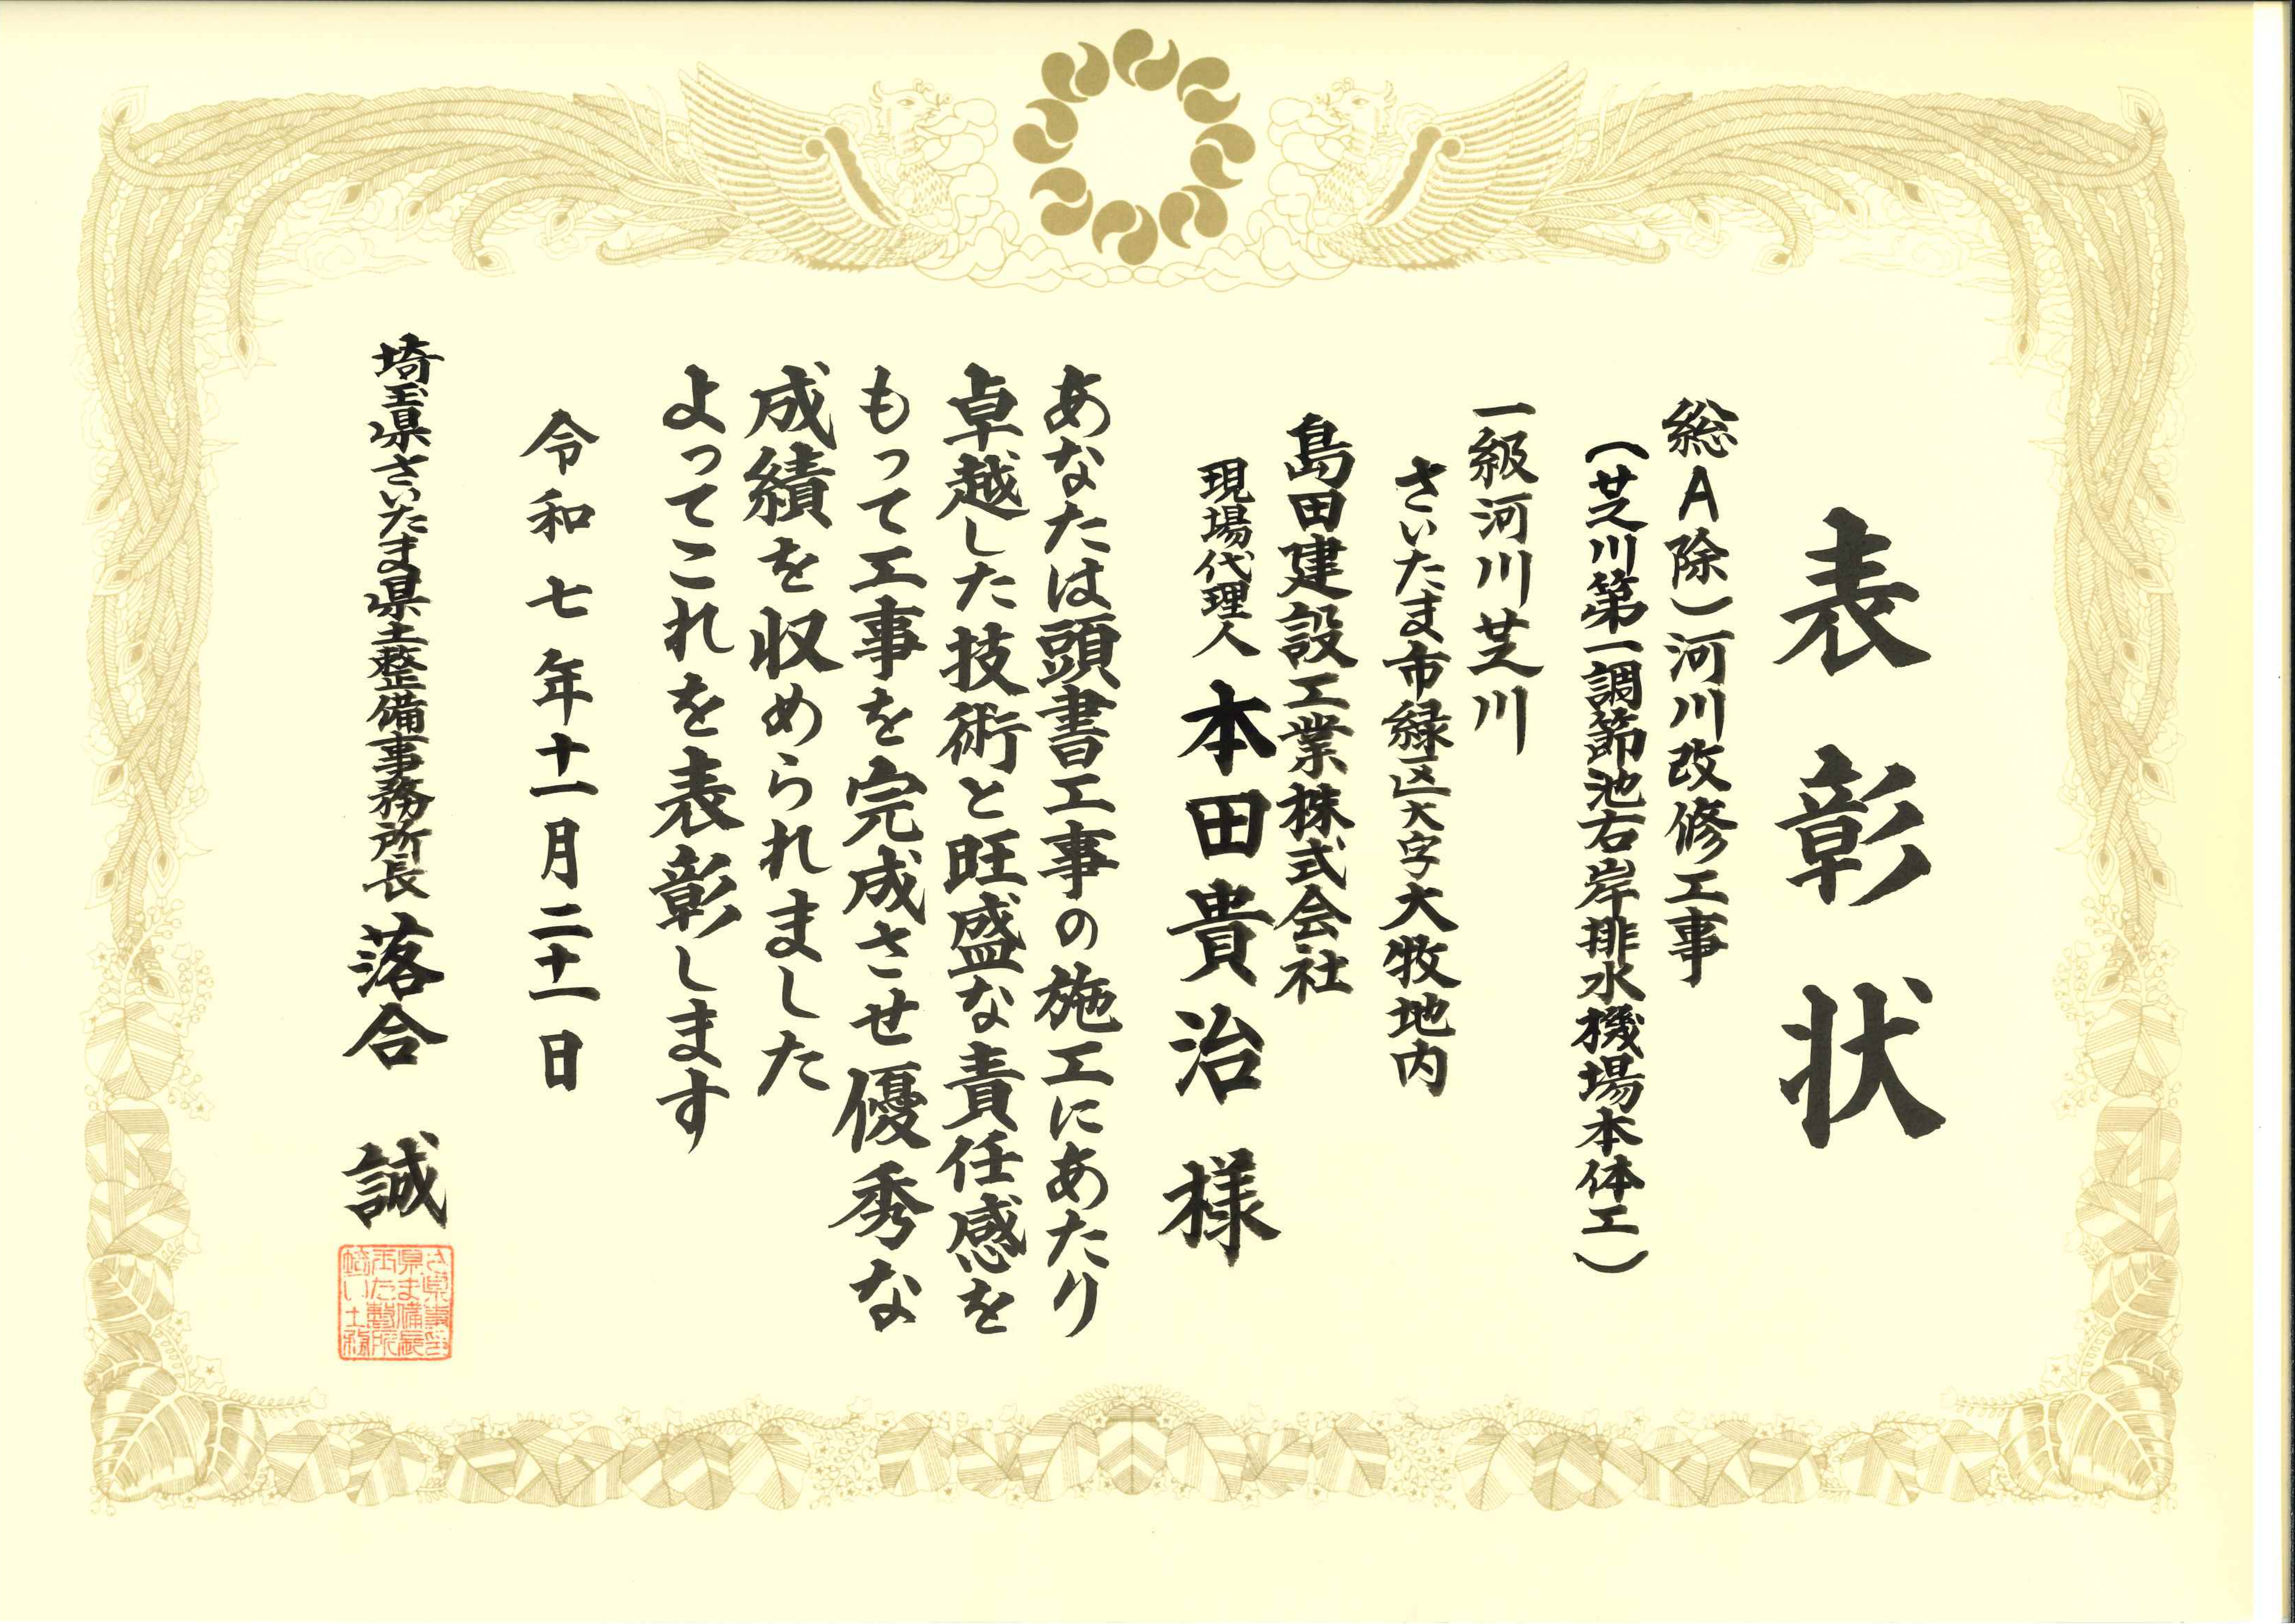 表彰状
総A除)河川改修工事
(芝川第一調節池右岸排水機場本体工)
一級河川芝川
さいたま市緑区大字大牧地内
島田建設工業株式会社
現場代理人 本田貴治 様
あなたは頭書工事の施工にあたり
卓越した技術と旺盛な責任感を
もって工事を完成させ優秀な
成績を収められました
よってこれを表彰します
令和七年十一月二十一日
埼玉県さいたま県土整備事務所長 落合 誠